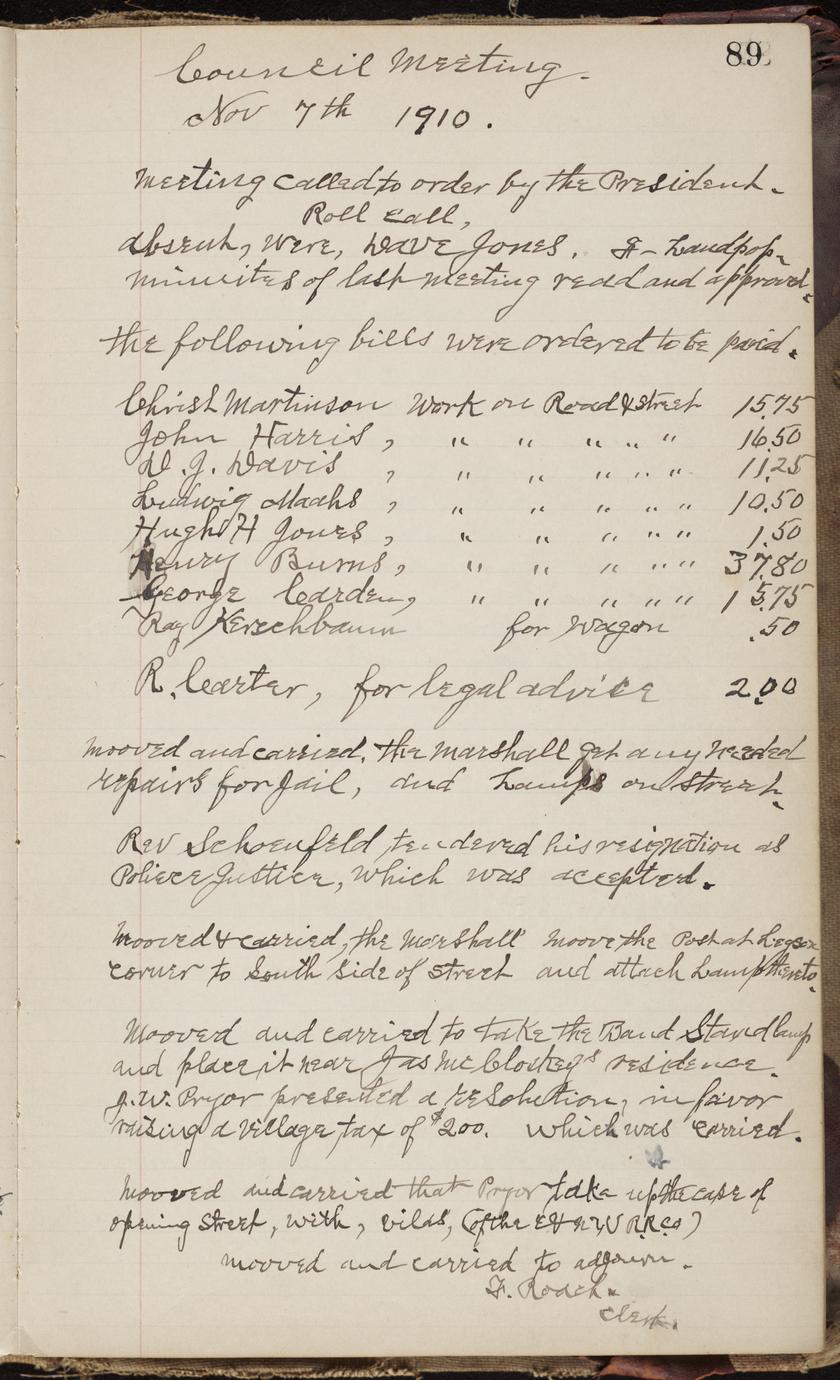 89
Council Meeting.
Nov 7th 1910.
Meeting called to order by the President.
Roll call,
absent, were, Dave Jones. F- Landpop.
minuites of last meeting read and approved.
the following bills were ordered to be paid.
Christ Martinson Work on Road & street 15.75
John Harris, " " " " " 16.50
D. J. Davis, " " " " " 11.25
Ludwig Maahs, " " " " " 10.50
Hugh H Jones, " " " " " 1.50
Henry Burns, " " " " " 37.80
George Carden, " " " " " 15.75
Ray Kerschbaum for Wagon .50
R. Carter, for legal advice 2.00
mooved and carried, the Marshall get any needed
repairs for Jail, and Lamps on street.
Rev Schoenfeld tendered his resignation as
Police Justice, which was accepted.
mooved & carried, the Marshall moove the Post at
corner to South side of street and attach Lamp thereto.
Mooved and carried to take the Band Stand lamp
and place it near Jas McCloskeys residence.
J. W. Pryor presented a resolution, in favor
raising a village tax of $200. which was carried.
Mooved and carried that Pryor take up the case of
opening street, with, vilas, (of the C & N W R.R.Co)
mooved and carried to adjourn.
F. Roach.
Clerk.